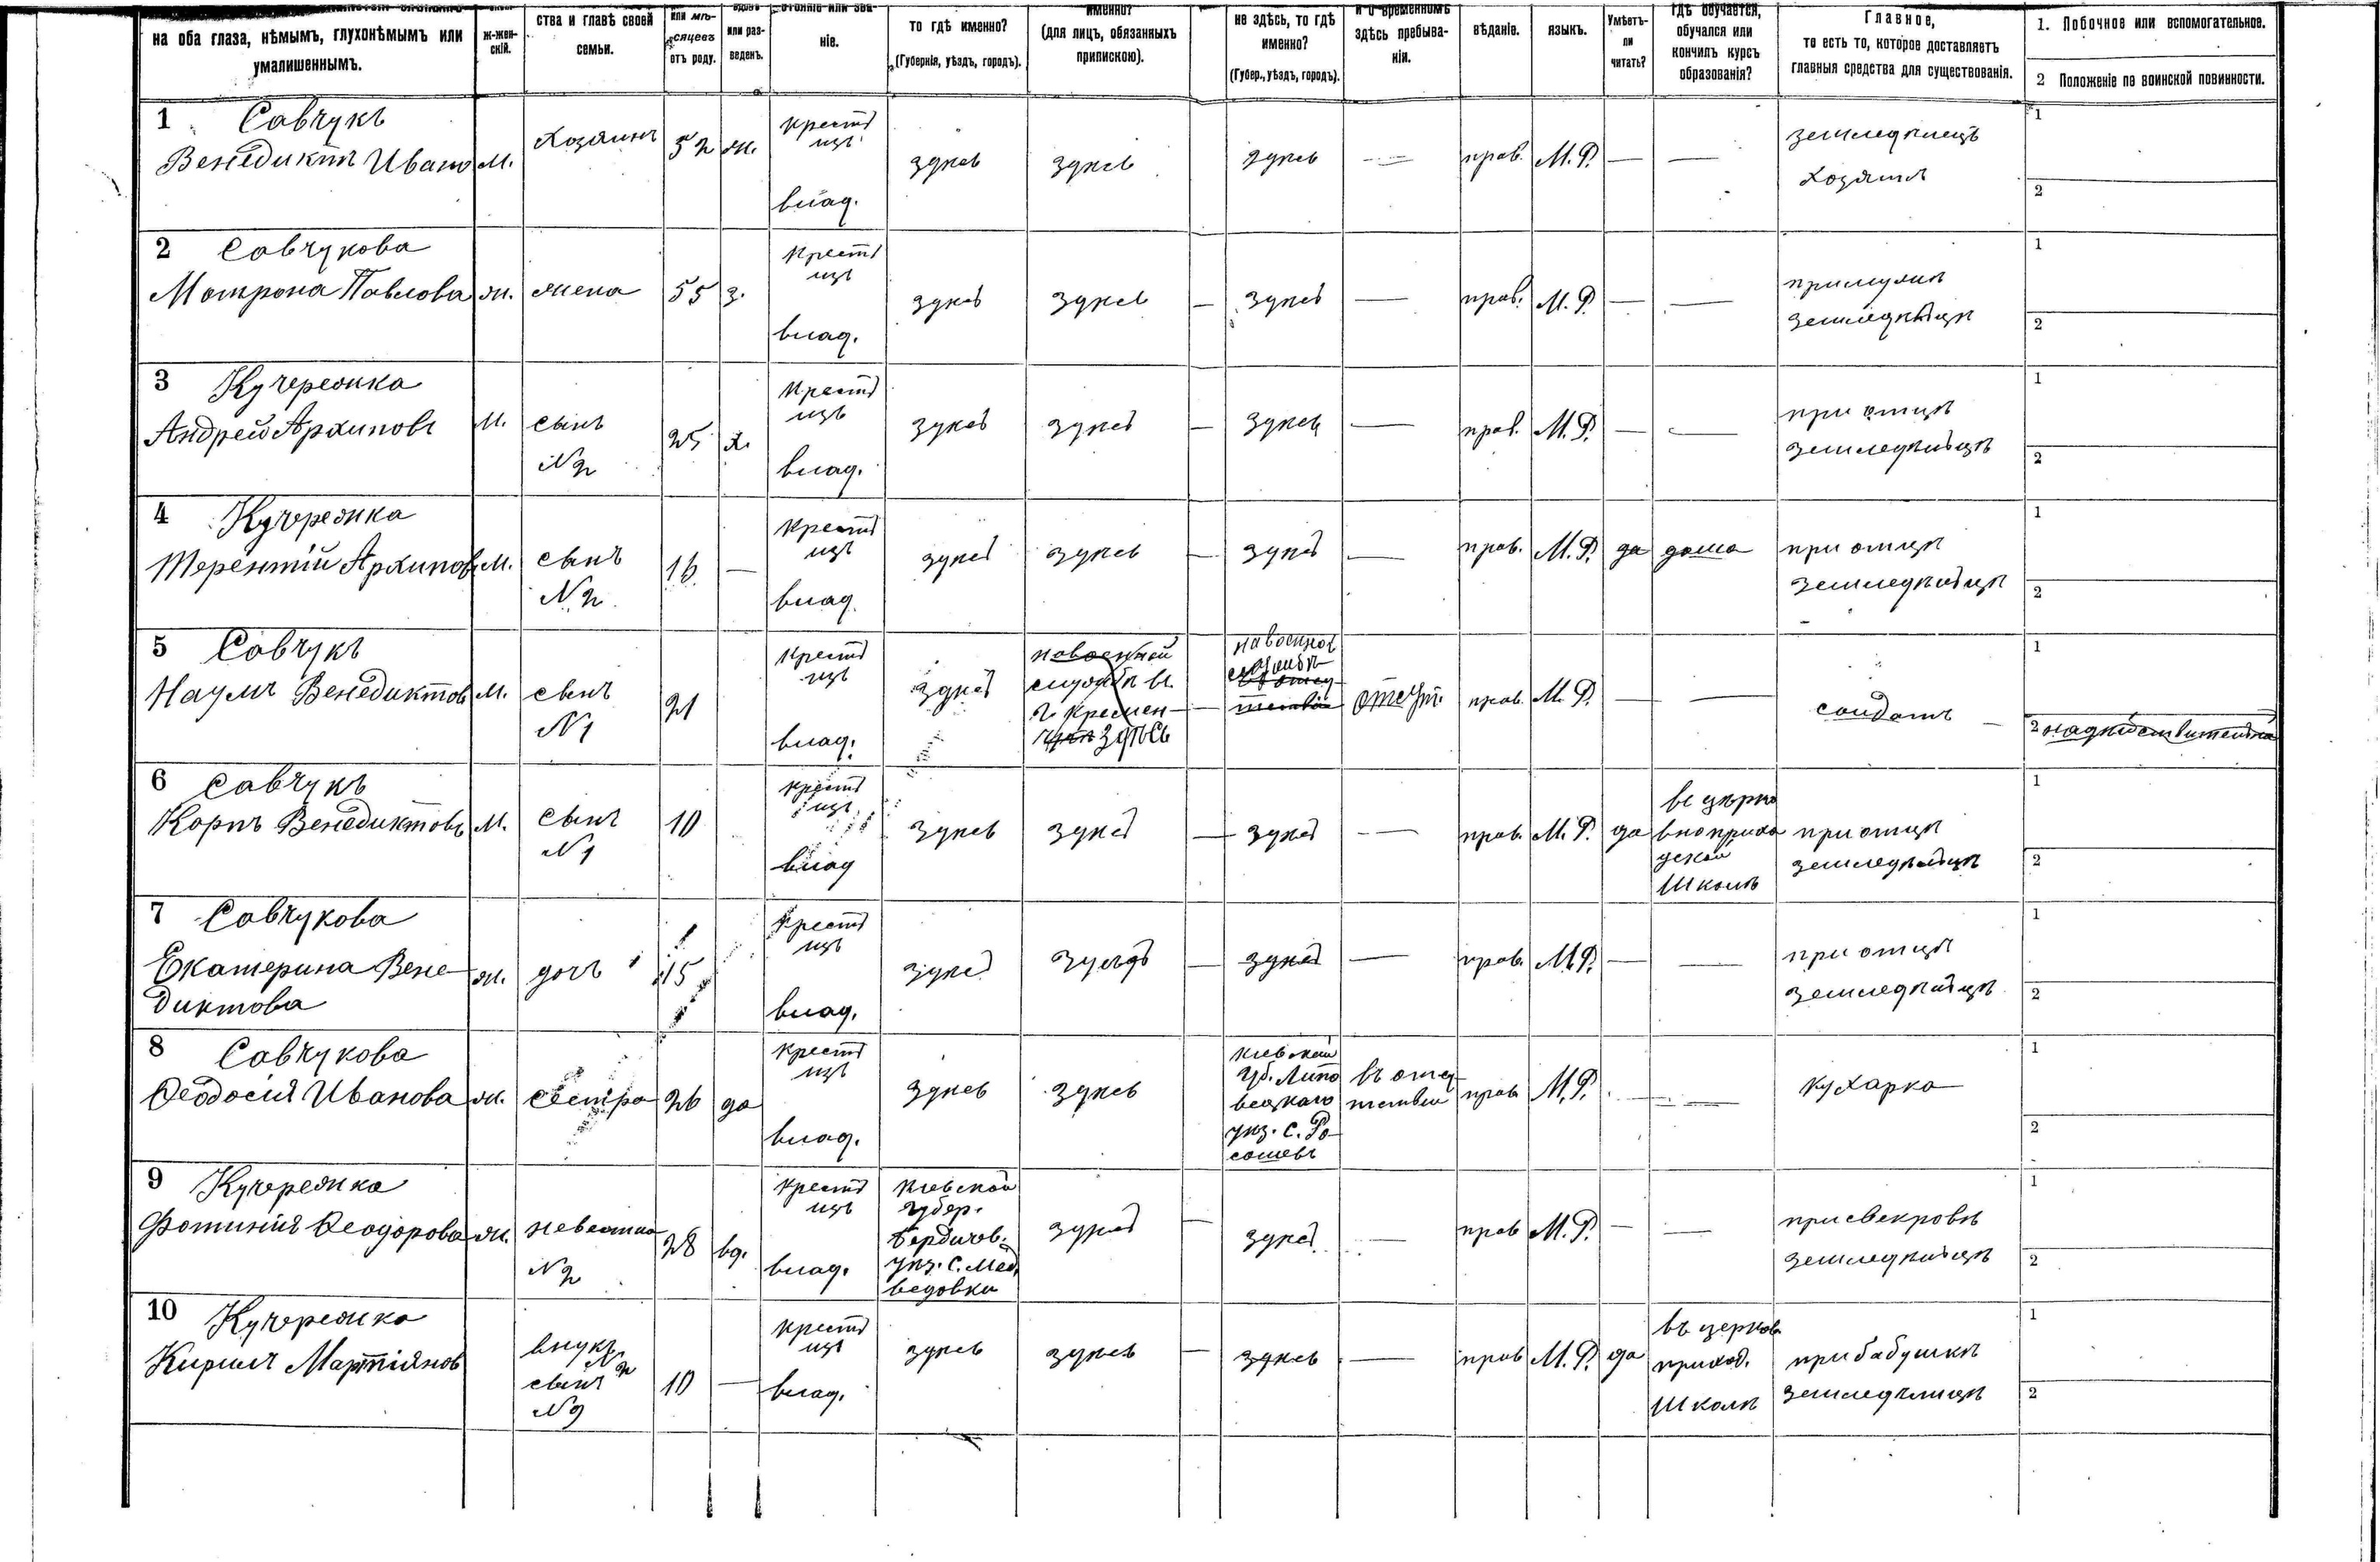 на оба глаза, нѣмымъ, глухонѣмымъ или умалишеннымъ.
ж-жен-скій.
ства и главѣ своей семьи.
или мѣ-сяцевъ отъ роду.
или раз-веденъ.
ніе.
то гдѣ именно?
(Губернія, уѣздъ, городъ).
(для лицъ, обязанныхъ припискою).
не здѣсь, то гдѣ именно?
(Губер., уѣздъ, городъ).
и о временномъ здѣсь пребыва-ніи.
вѣданіе.
языкъ.
Умѣетъ-ли читать?
гдѣ обучается, обучался или кончилъ курсъ образованія?
Главное,
то есть то, которое доставляетъ
главныя средства для существованія.
1. Побочное или вспомогательное.
2 Положеніе по воинской повинности.
1 Савчукъ
Венедиктъ Ивано м. хозяинъ 52 ж. крестьянцъ влад. здѣсь здѣсь здѣсь — прав. М.Р. — — земледѣлецъ хозяинъ 1 2
2 Савчукова
Мотрона Павлова ж. жена 55 з. влад. здѣсь здѣсь — здѣсь — прав. М.Р. — — при мужѣ 1 2
3 Кучережка
Андрей Архиповъ м. сынъ N2 25 х. влад. здѣсь здѣсь — здѣсь — прав. М.Р. — — при отцѣ 1 2
4 Кучережка
Терентій Архипов м. сынъ N2 16 — влад. здѣсь здѣсь — здѣсь — прав. М.Р. да дома при отцѣ 1 2
5 Савчукъ
Наумъ Венедиктов м. сынъ N1 21 влад. здѣсь на военной службѣ въ г. Кремен- здѣсь — на военной службѣ отсут. прав. М.Р. — — солдатъ 1 2 на дѣйствительной
6 Савчукъ
Корпъ Венедиктовъ м. сынъ N1 10 влад здѣсь здѣсь — здѣсь — прав. М.Р. да въ церко вноприхо дской школѣ при отцѣ 1 2
7 Савчукова
Екатерина Вене-
диктова ж. дочъ 15 влад. здѣсь здѣсь — здѣсь — прав. М.Р. — — при отцѣ 1 2
8 Савчукова
Ѳеодосія Иванова ж. сестра 26 да влад. здѣсь здѣсь Кіевской губ. Липо вецкаго уѣз. с. Ро- прав. М.Р. — — кухарка 1 2
9 Кучережка
Фотинія Ѳеодорова ж. невестка N2 28 вд. влад. Кіевской губер. Бердичов. уѣз. с. Мед ведовки здѣсь — здѣсь — прав М.Р. — — при свекровѣ 1 2
10 Кучережка
Кирилъ Мартіянов внукъ N2 сынъ N9 10 — влад. здѣсь здѣсь — здѣсь — прав М.Р. да въ церков. приход. школѣ при бабушкѣ 1 2